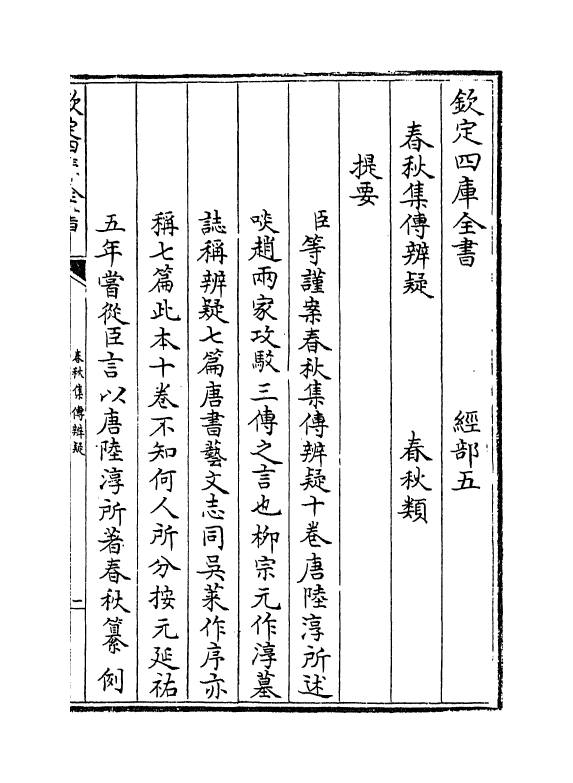 欽定四庫全書　經部五
春秋集傳辨疑　春秋類
提要
臣等謹案春秋集傳辨疑十卷唐陸淳所述
啖趙兩家攻駁三傳之言也柳宗元作淳墓
誌稱辨疑七篇唐書藝文志同吳萊作序亦
稱七篇此本十卷不知何人所分按元延祐
五年嘗從臣言以唐陸淳所著春秋纂例
春秋集傳辨疑